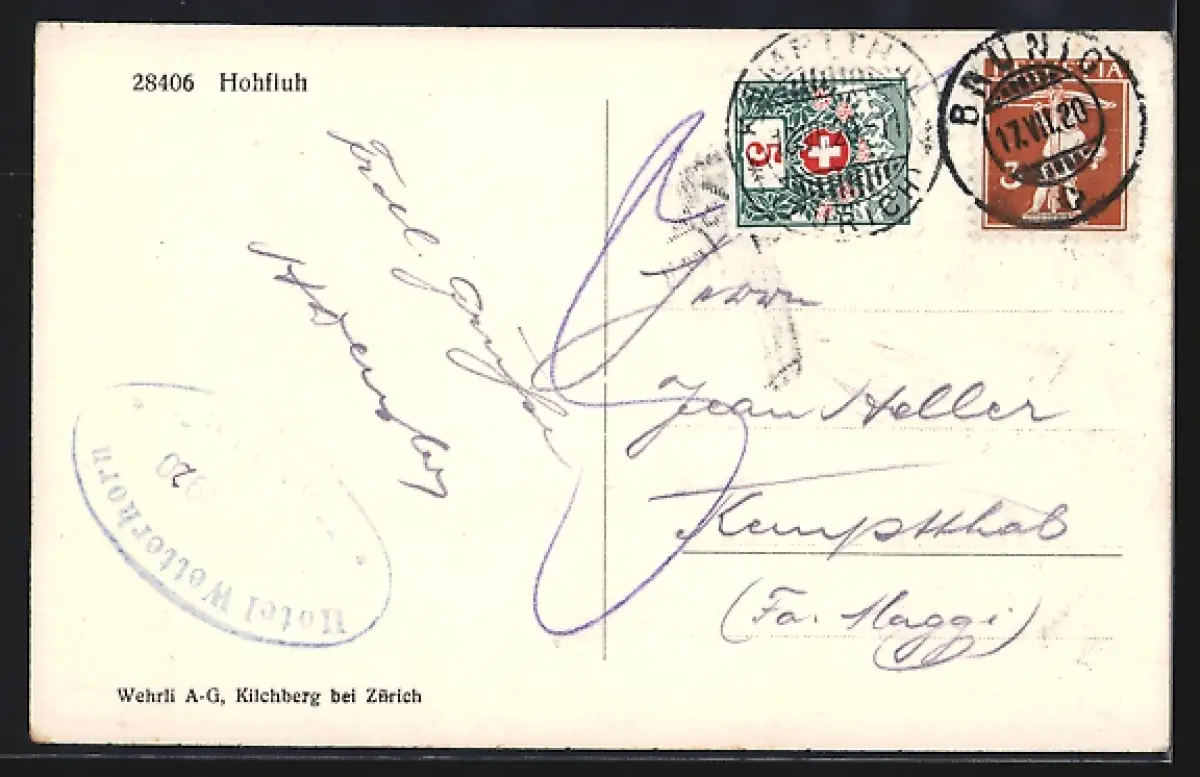 28406 Hohfluh
KEMPTTHAL
(ZÜRICH)
5
BRÜNIG
17.VII.20
HELVETIA
3
Herrn
Jean Heller
Kemptthal
(Fa. Maggi)
5
Hotel Wetterhorn
1920
Wehrli A-G, Kilchberg bei Zürich